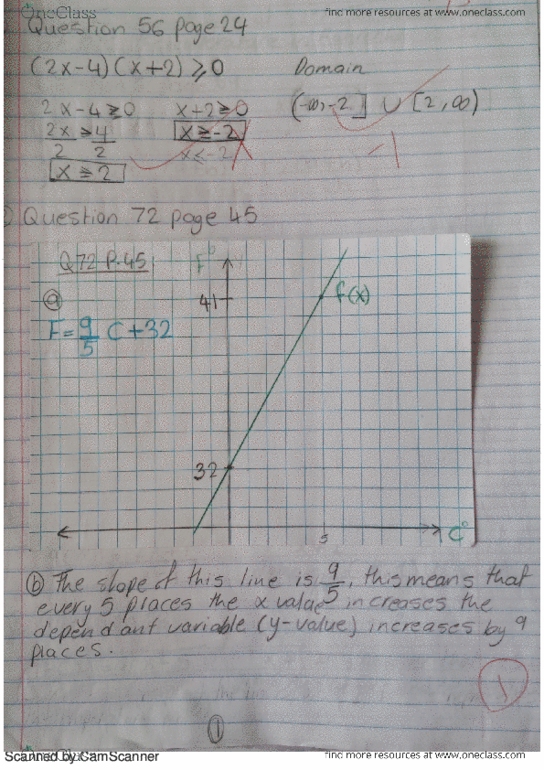 OneClass
find more resources at www.oneclass.com
Question 56 page 24
(2x-4)(x+2) ⩾ 0 Domain
2x-4 ≥ 0 x+2 ≥ 0 (-∞,-2] ∪ [2,∞)
2x ≥ 4 x ≥ -2
2 2 x ≤ -2 -1
x ≥ 2
Question 72 page 45
Q72 P.45 F°
ⓐ 41 f(x)
F = 9/5 C + 32
32
5 C°
ⓑ The slope of this line is 9/5, this means that
every 5 places the x value increases the
dependant variable (y-value) increases by 9
places.
1
①
Scanned by CamScanner
find more resources at www.oneclass.com